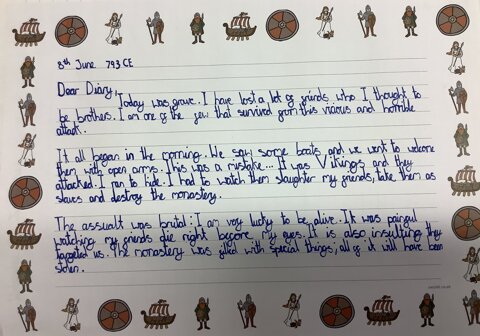 8th June 793 CE
Dear Diary,
Today was grave. I have lost a lot of friends who I thought to
be brothers. I am one of the few that survived from this vicious and horrible
attack.
It all began in the morning. We saw some boats and we went to welcome
them with open arms. This was a mistake... It was Vikings and they
attacked. I ran to hide. I had to watch them slaughter my friends, take them as
slaves and destroy the monastery.
The assualt was brutal: I am very lucky to be alive. It was painful
watching my friends die right before my eyes. It is also insulting they
targeted us. The monastery was filled with special things, all of it will have been
stolen.